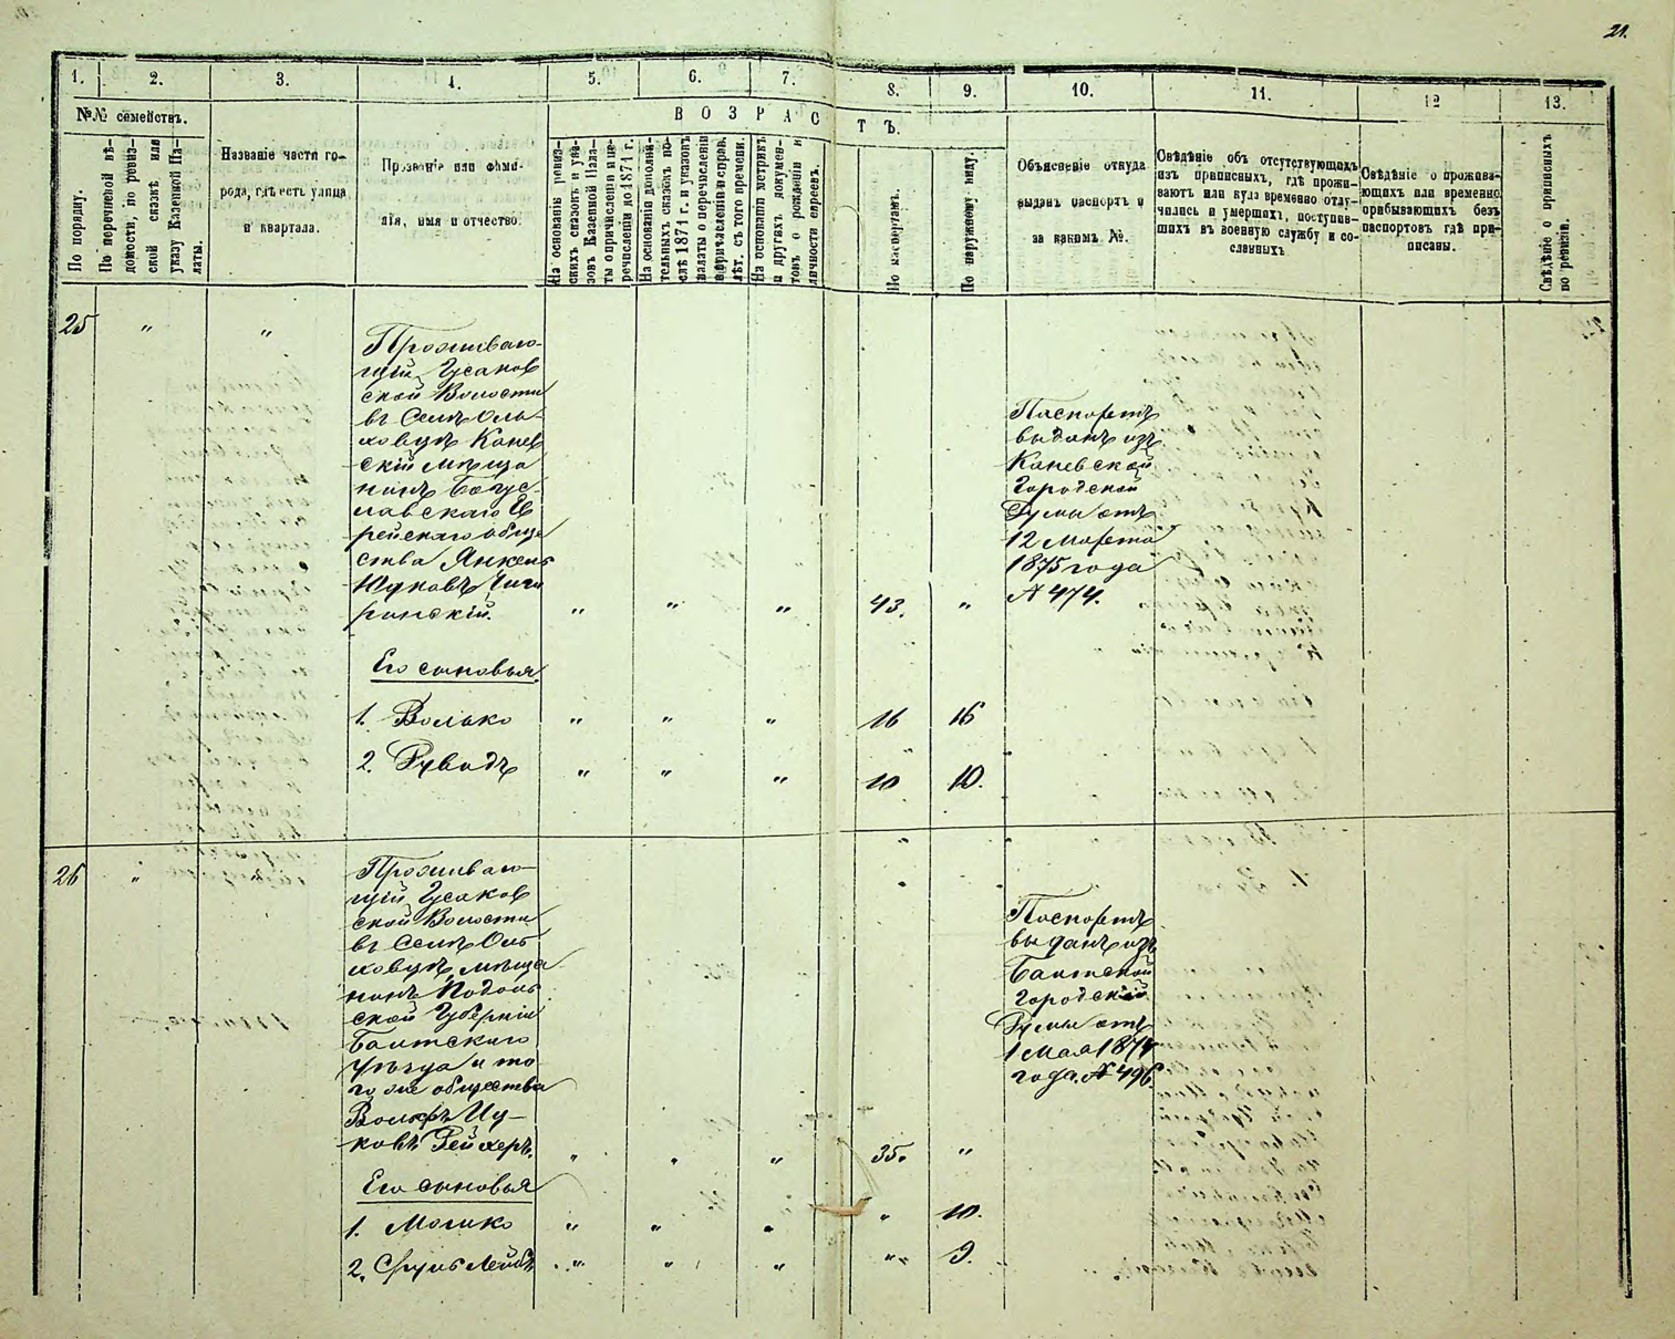 21.
1. 2. 3. 4. 5. 6. 7. 8. 9. 10. 11. 12 13.
№№ семействъ.
В О З Р А С Т Ъ.
По порядку.
По перечневой вѣ-
домости, по ревиз-
ской сказкѣ или
указу Казенной Па-
латы.
Названіе части го-
рода, гдѣ есть улица
и квартала.
Прозваніе или фами-
лія, имя и отчество.
На основаніи ревиз-
скихъ сказокъ и ука-
зовъ Казенной Пала-
ты о причисленіи и пе-
речисленіи до 1871 г.
На основаніи дополни-
тельныхъ сказокъ по-
слѣ 1871 г. и указовъ
палаты о перечисленіи
лѣт. съ того времени.
На основаніи метрикъ
и другихъ докумен-
товъ о рожденіи и
личности евреевъ.
По паспортамъ.
По наружному виду.
Объясненіе откуда
выданъ паспортъ и
за какимъ №.
Свѣдѣніе объ отсутствующихъ
изъ приписныхъ, гдѣ прожи-
ваютъ или куда временно отлу-
чились и умершихъ, поступив-
шихъ въ военную службу и со-
сланныхъ
Свѣдѣніе о прожива-
ющихъ или временно
прибывающихъ безъ
паспортовъ гдѣ при-
писаны.
Свѣдѣніе о приписныхъ
по ревизіи.
25 " "
Проживаю-
щій Гусаков
ской Волости
въ Селѣ Оль-
ховцѣ Канев
скій мѣща
нинъ Богус-
лавскаго Ев
рейскаго обще
ства Янкель
Юдковъ Чиги
ринскій. " " " 43. "
Паспортъ
выданъ изъ
Каневской
Городской
Думы отъ
12 Марта
1875 года
№ 474.
Его сыновья.
1. Волько " " " 16 16
2. Рувинъ " " " 10 10.
26 " "
Проживаю-
щій Гусаков
ской Волости
въ Селѣ Оль
ховцѣ, мѣща
нинъ Подоль
ской Губерніи
Балтского
Уѣзда и то
го же общества
Вольфъ Иц-
ковъ Рейхеръ. " " " 35. "
Паспортъ
выданъ изъ
Балтской
Городской
Думы отъ
1 Мая 1874
года. № 496.
Его сыновья
1. Мошко " " " " 10.
2. Сруль Лейбъ " " " " 9.